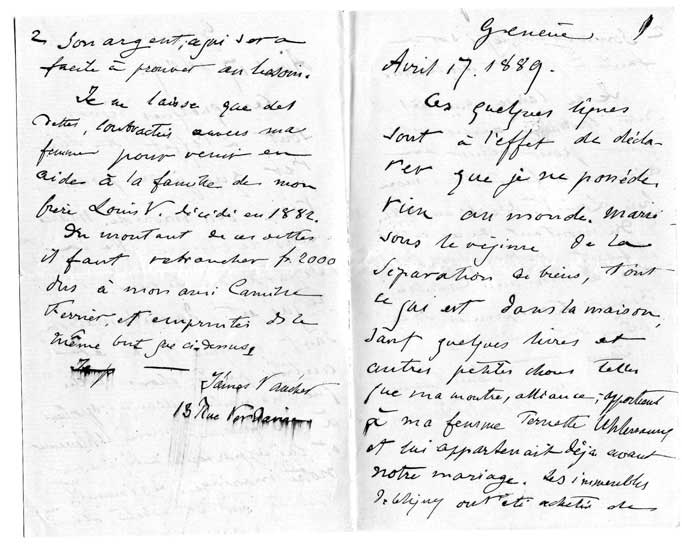 Genève 1
Avril 17. 1889.
Ces quelques lignes
sont à l'effet de décla-
rer que je ne possède
rien au monde. Marié
sous le régime de la
séparation de biens, tout
ce qui est dans la maison,
sauf quelques livres et
autres petites choses telles
que ma montre, alliance, appartient
à ma femme
et lui appartenait déjà avant
notre mariage. Les immeubles
ont été achetés de
2 son argent, ce qui sera
facile à prouver au besoin.
Je ne laisse que des
dettes, contractées envers ma
femme pour venir en
aide à la famille de mon
frère Louis V. décédé en 1882.
Du montant de ces dettes
il faut retrancher fr. 2000
dus à mon ami Camille
Ferrier, et empruntés dans le
même but que ci-dessus.
James Vaucher
13 Rue